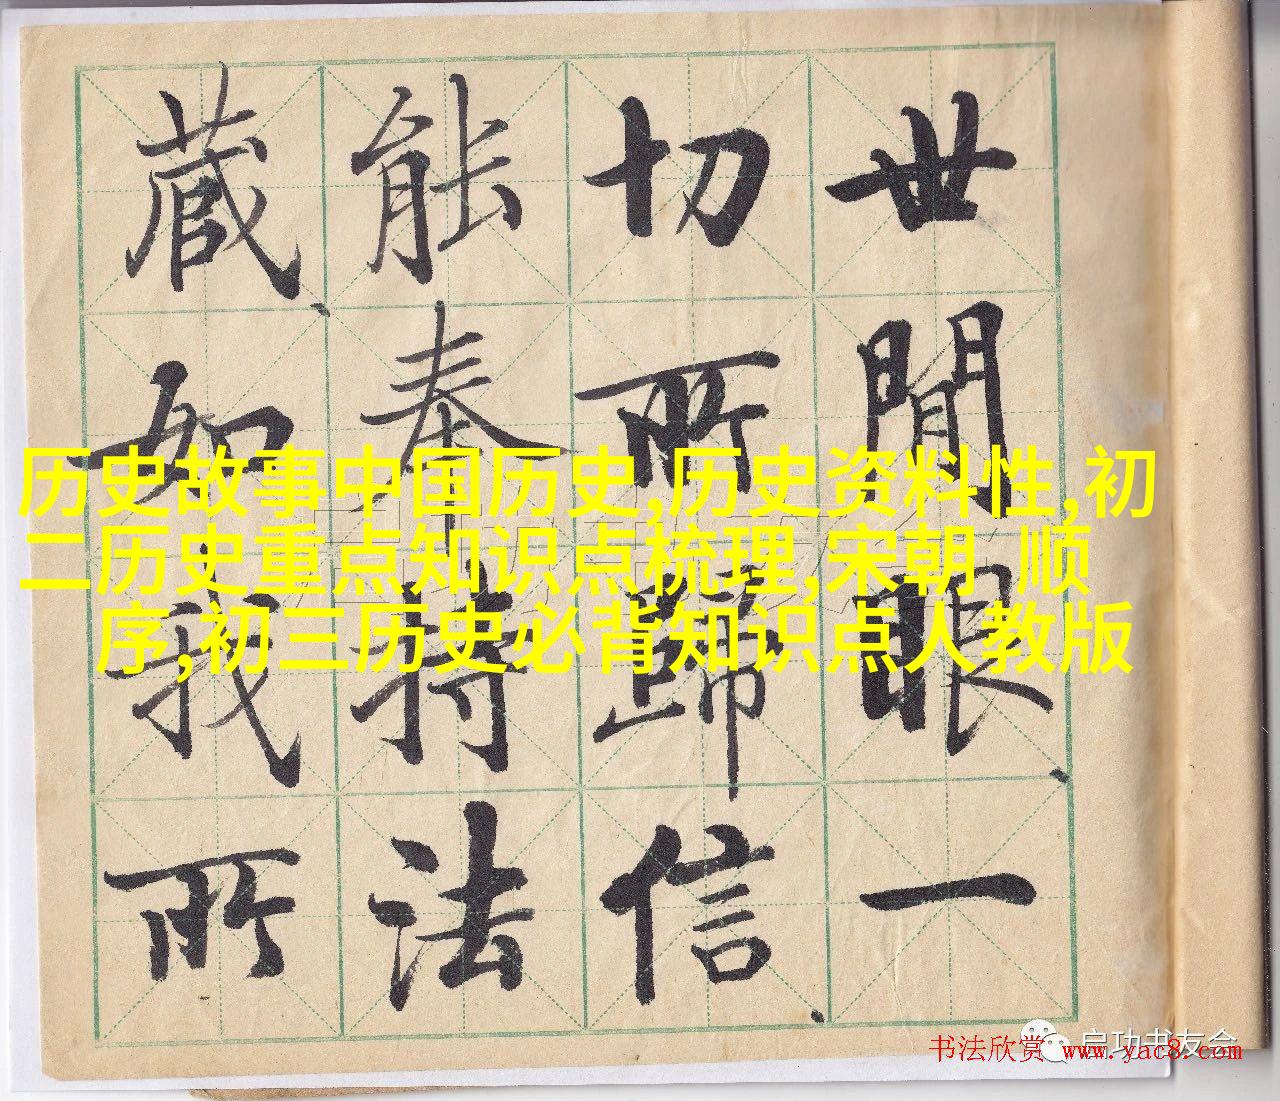 世間眼一
切所歸信
能奉持法
藏如我所
历史故事中国历史,历史资料性,初
二历史重点知识点梳理,宋朝 顺
序,初三历史必背知识点人教版
启功书友会
书法欣赏 www.yac8.com